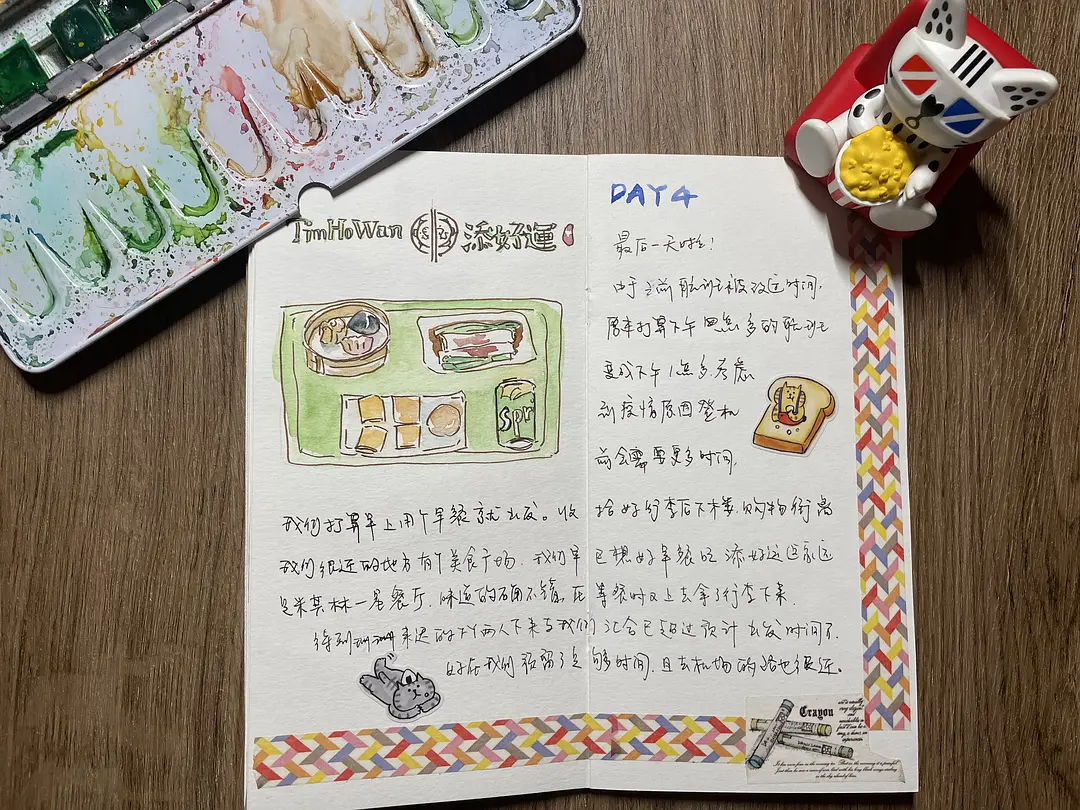 TimHoWan 添好運
DAY4
最后一天啦!
由于当前航班被改过时间,
原来打算下午四点多的航班
变成下午1点多,考虑
到疫情原因登机
前会需要更多时间,
我们打算早上用个早餐就出发。收拾好行李后下楼,购物街离
我们很近的地方有个美食广场,我们早已想好早餐吃添好运这家还
是米其林一星餐厅,味道的确不错,在等餐时又上去拿了行李下来.
待到来迟的两人下来与我们汇合已超过预计出发时间了.
好在我们预留了足够多时间,且去机场的路也很近。
Spr
Crayon